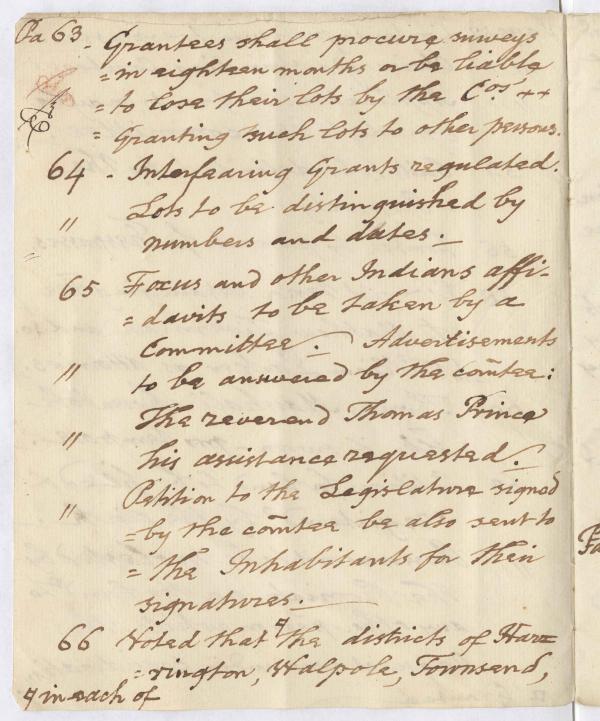 Pa 63 - Grantees shall procure surveys
= in eighteen months or be liable
= to lose their lots by the Cos. ++
= Granting such lots to other persons.
64 - Interfearing Grants regulated.
" Lots to be distinguished by
numbers and dates. -
65 Foxus and other Indians affi-
= davits to be taken by a
Committee. - Advertisements
" to be answered by the com̄tee:
" The reverend Thomas Prince
his assistance requested. -
" Petition to the Legislature signed
= by the com̄tee be also sent to
= the Inhabitants for their
signatures. -
66 Noted that 4 the districts of Harr=
= rington, Walpole, Townsend,
4 in each of